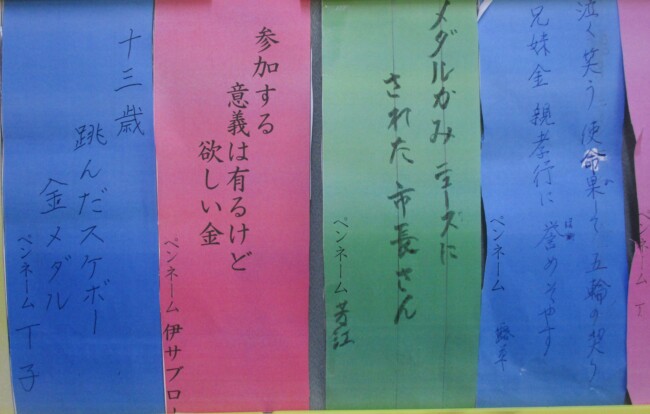 泣く笑う 使命果して 五輪の
兄妹金 親孝行に 誉めそやす
ペンネーム
メダルかみ ニーズに
された 市長さん
ペンネーム 芳江
参加する
意義は有るけど
欲しい金
ペンネーム 伊サブロー
十三歳
跳んだスケボー
金メダル
ペンネーム 丁子
ペンネーム